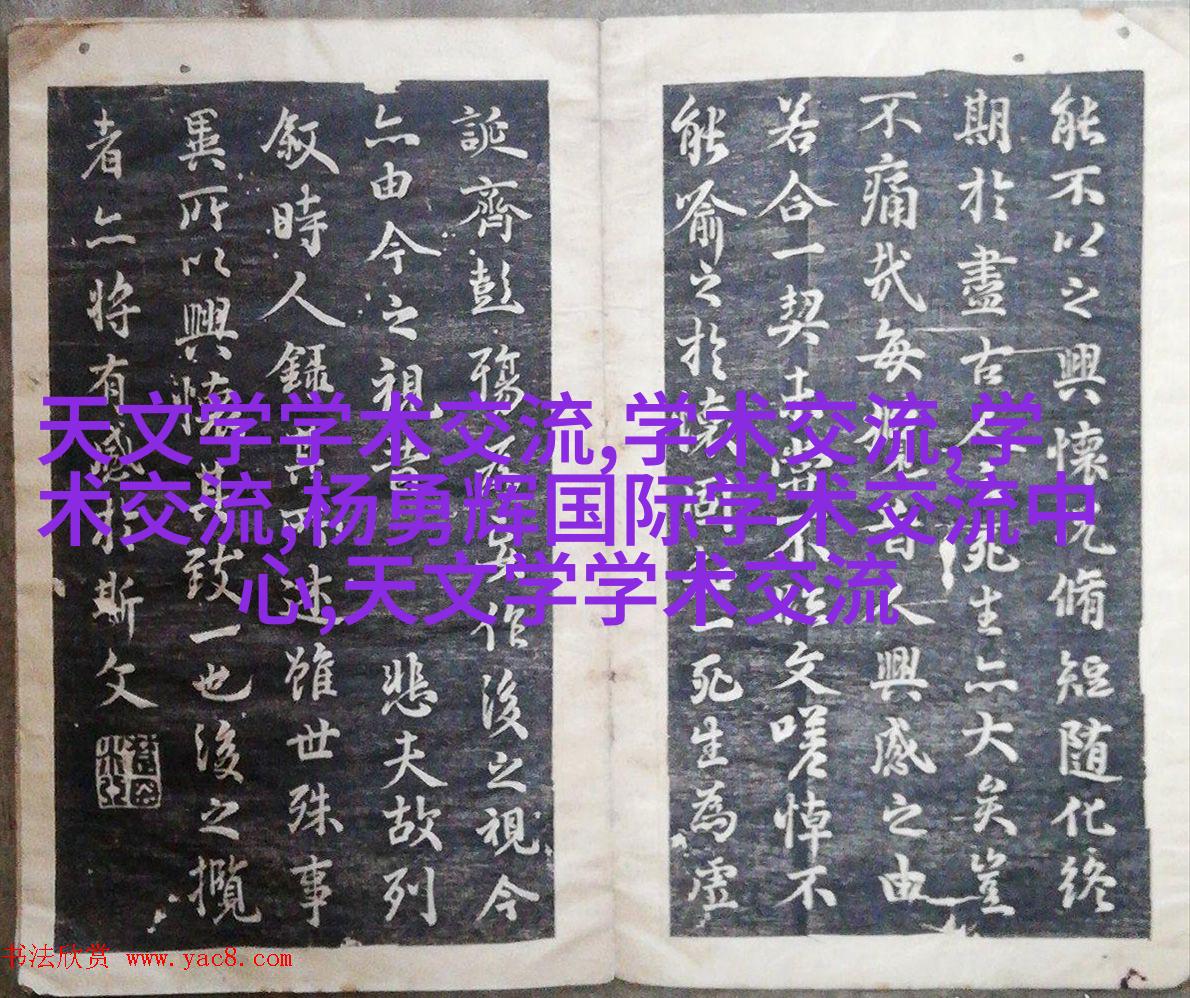 能不以之興懷况脩短随化終
期於盡古死生亦大矣豈
不痛哉每攬昔人興感之由
若合一契未嘗不臨文嗟悼不
能喻之於懷一死生為虛
誕齊彭殤為妄作後之視今
亦由今之視昔悲夫故列
敘時人錄其所述雖世殊事
異所以興懷其致一也後之攬
者亦將有感於斯文
天文学学术交流,学术交流,学
术交流,杨勇辉国际学术交流中
心,天文学学术交流
书法欣赏 www.yac8.com